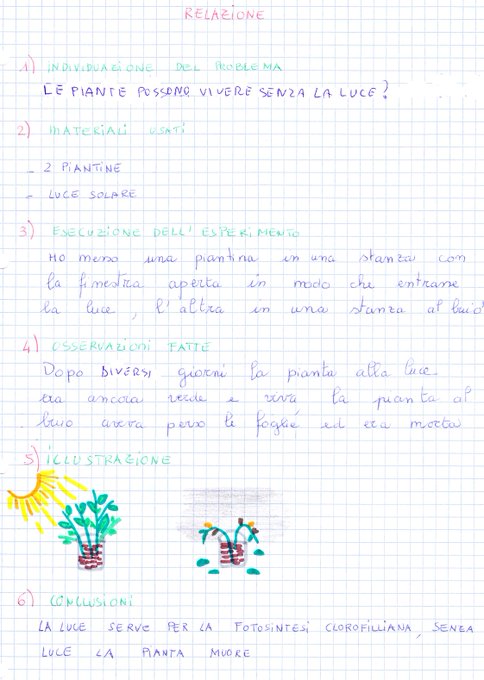 RELAZIONE
1) INDIVIDUAZIONE DEL PROBLEMA
LE PIANTE POSSONO VIVERE SENZA LA LUCE?
2) MATERIALI USATI
- 2 PIANTINE
- LUCE SOLARE
3) ESECUZIONE DELL'ESPERIMENTO
HO messo una piantina in una stanza con
la finestra aperta in modo che entrasse
la luce, l'altra in una stanza al buio
4) OSSERVAZIONI FATTE
Dopo DIVERSI giorni la pianta alla luce
era ancora verde e viva la pianta al
buio aveva perso le foglie ed era morta
5) ILLUSTRAZIONE
6) CONCLUSIONI
LA LUCE SERVE PER LA FOTOSINTESI CLOROFILLIANA, SENZA
LUCE LA PIANTA MUORE